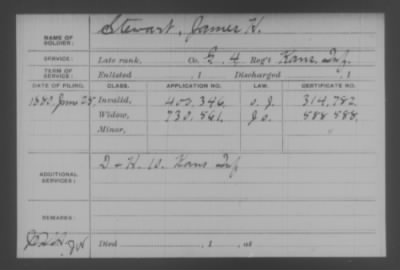 NAME OF SOLDIER: Stewart, James H.
SERVICE: Late rank, Co. G, 4 Reg't Kans. Inf.
TERM OF SERVICE: Enlisted , 1 Discharged , 1
DATE OF FILING. CLASS. APPLICATION NO. LAW. CERTIFICATE NO.
1880 June 28, Invalid, 400.346. O. J. 314.782.
Widow, 730.561. J. O. 588 588.
Minor,
ADDITIONAL SERVICES: D & K. 10. Kans Inf
REMARKS:
Died , 1 , at